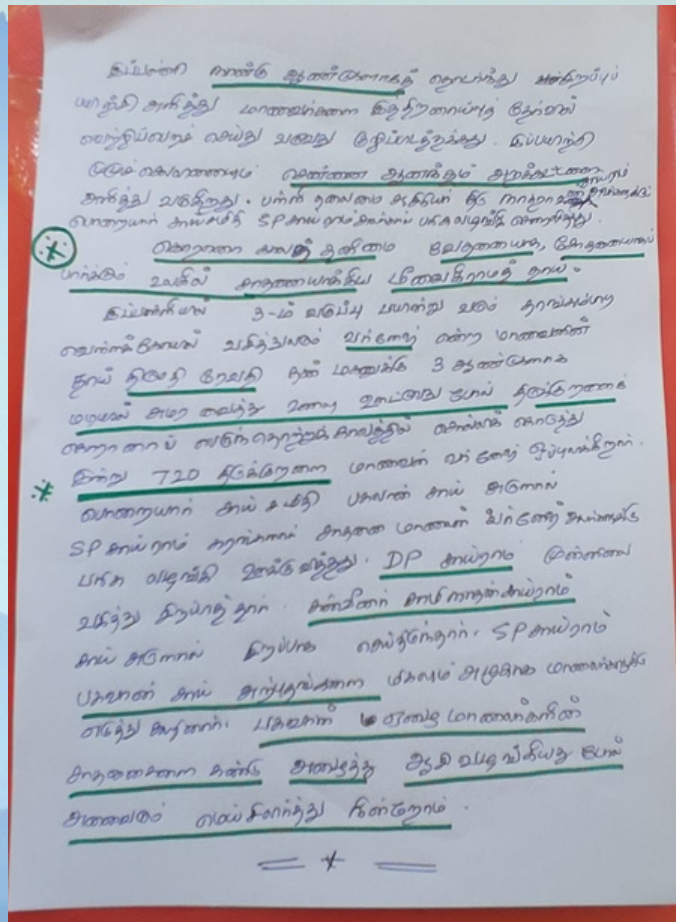 இப்பள்ளி நான்கு ஆண்டுகளாகத் தொடர்ந்து சிறப்புப்
பயிற்சி அளித்து மாணவர்களை இத்திறனாய்வுத் தேர்வில்
வெற்றிபெறச் செய்து வருவது குறிப்பிடத்தக்கது. இப்பயிற்சி
முழுச்செலவையும் சென்னை ஆனந்தம் அறக்கட்டளை
அளித்து வருகிறது. பள்ளி தலைமை ஆசிரியர் திரு
பொறையார் சாய் சமிதி SP சாய்ராம் பரிசு வழங்கி கௌரவித்தது.
கொரோனா காலத் தனிமை வேதனையாக, சோதனையாகப்
பார்க்கும் உலகில் சாதனையாக்கிய கிராமத் தாய்.
இப்பள்ளியில் 3-ம் வகுப்பு பயின்று வரும்
வெள்ளக்கோயில் வசித்துவரும் என்ற மாணவனின்
தாய் திருமதி ரேவதி தன் மகனுக்கு 3 ஆண்டுகளாக
மடியில் அமர வைத்து உணவு ஊட்டுவது போல் திருக்குறளைக்
கொரானாப் பெருந்தொற்றுக் காலத்தில் சொல்லிக் கொடுத்து
இன்று 720 திருக்குறளை மாணவன் ஒப்புவிக்கிறார்.
பொறையார் சாய் சமிதி பகவான் சாய் அருளால்
SP சாய்ராம் கரங்களால் சாதனை மாணவன்
பரிசு வழங்கி ஊக்குவித்தது. DP சாய்ராம் முன்னிலை
வகித்து சிறப்பித்தார். கன்வீனர் சாமிநாதன் சாய்ராம்
சாய் அருளால் சிறப்பாக செய்திருந்தார். SP சாய்ராம்
பகவான் சாய் அற்புதங்களை மிகவும் அழகாக மாணவர்களுக்கு
எடுத்து கூறினார். பகவான் ஏழை மாணவர்களின்
சாதனைகளை கண்டு அழைத்து ஆசி வழங்கியது போல்
அனைவரும் மெய்சிலிர்த்து நின்றோம்.